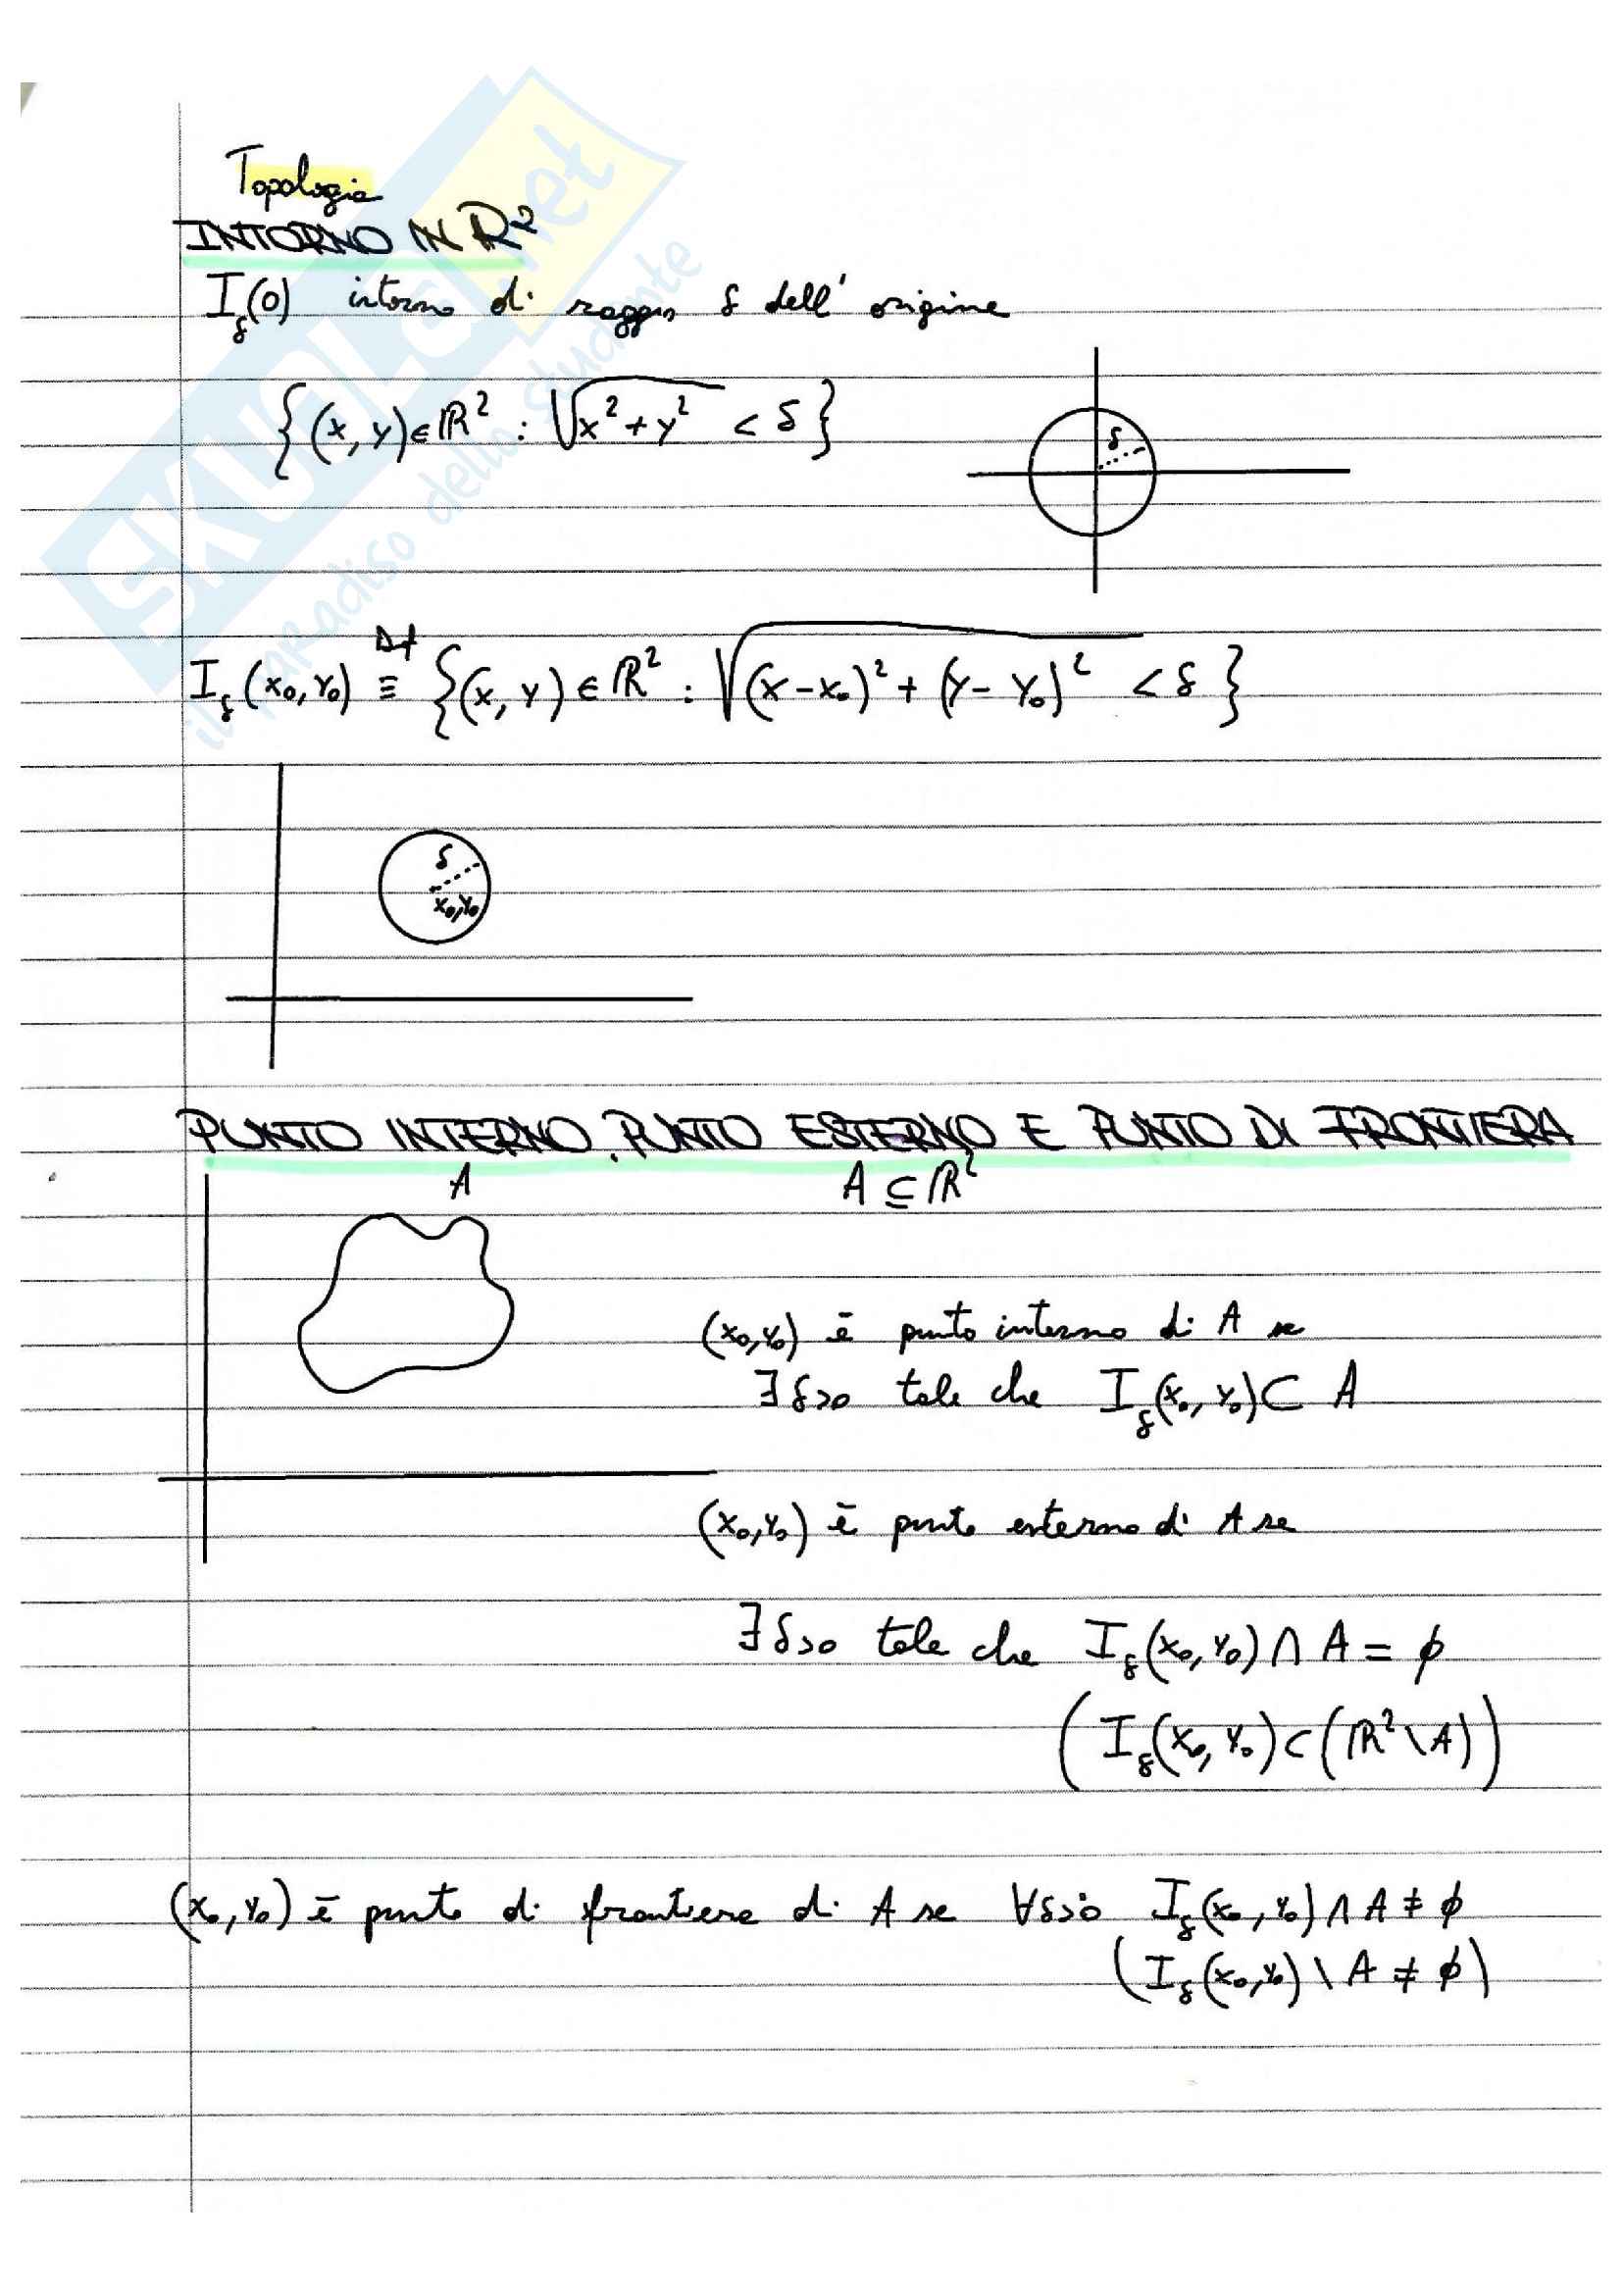 Topologia
INTORNO IN ℝ²
I_δ(0) intorno di raggio δ dell' origine
{(x, y) ∈ ℝ² : √(x² + y²) < δ}
δ
I_δ(x₀, y₀) ≡^Def {(x, y) ∈ ℝ² : √((x - x₀)² + (y - y₀)²) < δ}
δ
x₀, y₀
PUNTO INTERNO, PUNTO ESTERNO E PUNTO DI FRONTIERA
A
A ⊆ ℝ²
(x₀, y₀) è punto interno di A se
∃ δ>0 tale che I_δ(x₀, y₀) ⊂ A
(x₀, y₀) è punto esterno di A se
∃ δ>0 tale che I_δ(x₀, y₀) ∩ A = ∅
(I_δ(x₀, y₀) ⊂ (ℝ² \ A))
(x₀, y₀) è punto di frontiera di A se ∀δ>0 I_δ(x₀, y₀) ∩ A ≠ ∅
(I_δ(x₀, y₀) \ A ≠ ∅)
SKUOLA.net
il paradiso dello studente